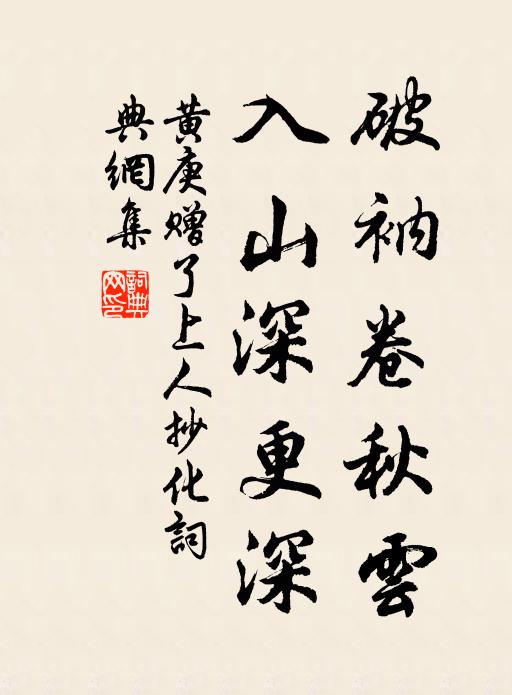 破衲卷秋雲
入山深更深
黄庚贈了上人抄化詞
典網集
詞典
网印